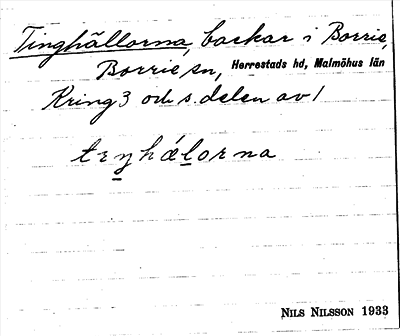 Tinghällorna, backar i Borrie,
Borrie sn, Herrestads hd, Malmöhus län
Kring 3 och s. delen av 1
teŋhǽlorna
NILS NILSSON 1933